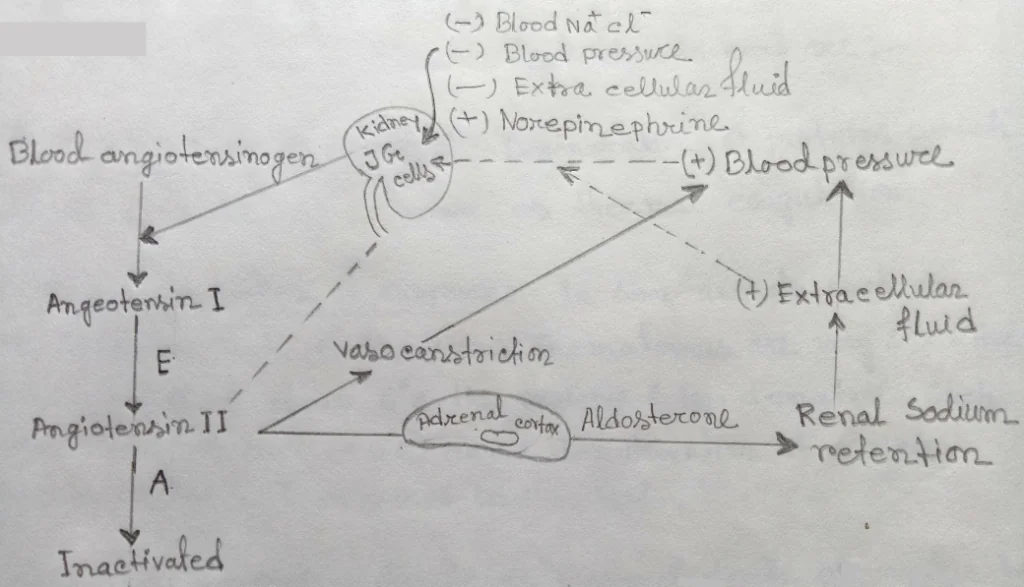 (-) Blood Na+ cl-
(-) Blood pressure
(-) Extra cellular fluid
(+) Norepinephrine
Kidney
JGc
cells
Blood angiotensinogen
(+) Blood pressure
Angeotensin I
(+) Extracellular
fluid
E
vasoconstriction
Angiotensin II
Adrenal cortex
Aldosterone
Renal Sodium
retention
A
Inactivated